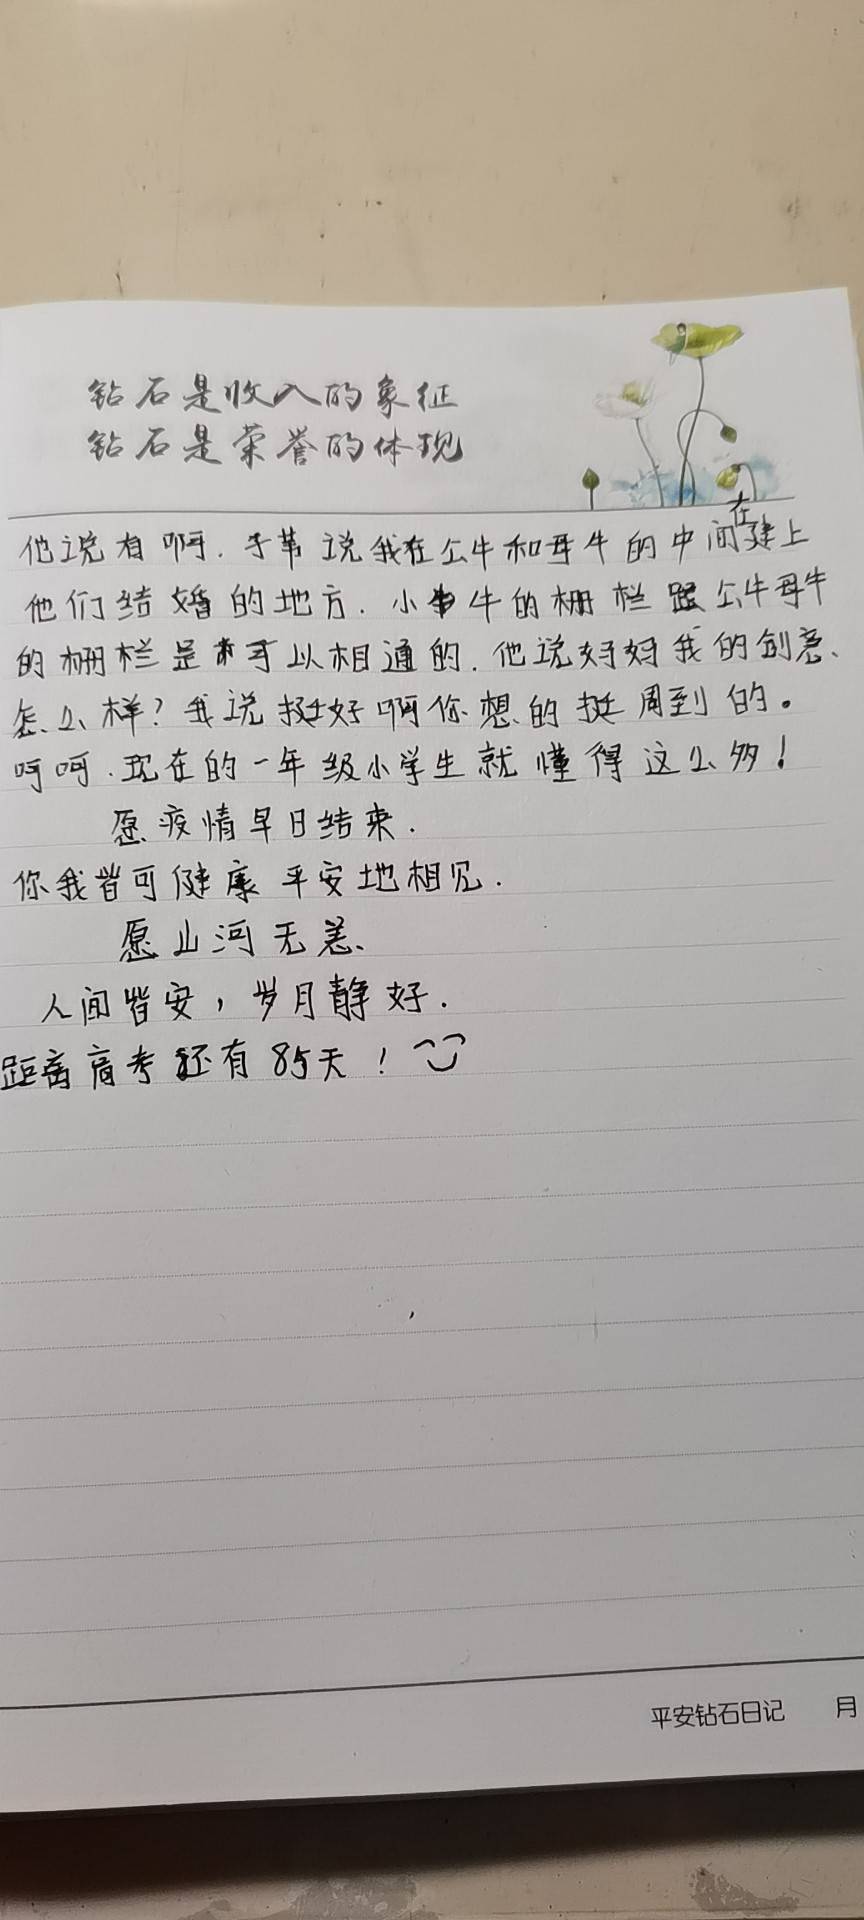 钻石是收入的象征
钻石是荣誉的体现
他说有啊.于苇说我在公牛和母牛的中间在建上
他们结婚的地方.小牛的栅栏跟公牛母牛
的栅栏是可以相通的.他说妈妈我的创意、
怎么样?我说挺好啊你想的挺周到的。
呵呵.现在的一年级小学生就懂得这么多!
愿疫情早日结束.
你我皆可健康平安地相见.
愿山河无恙、
人间皆安，岁月静好.
距离高考还有85天!
平安钻石日记 月